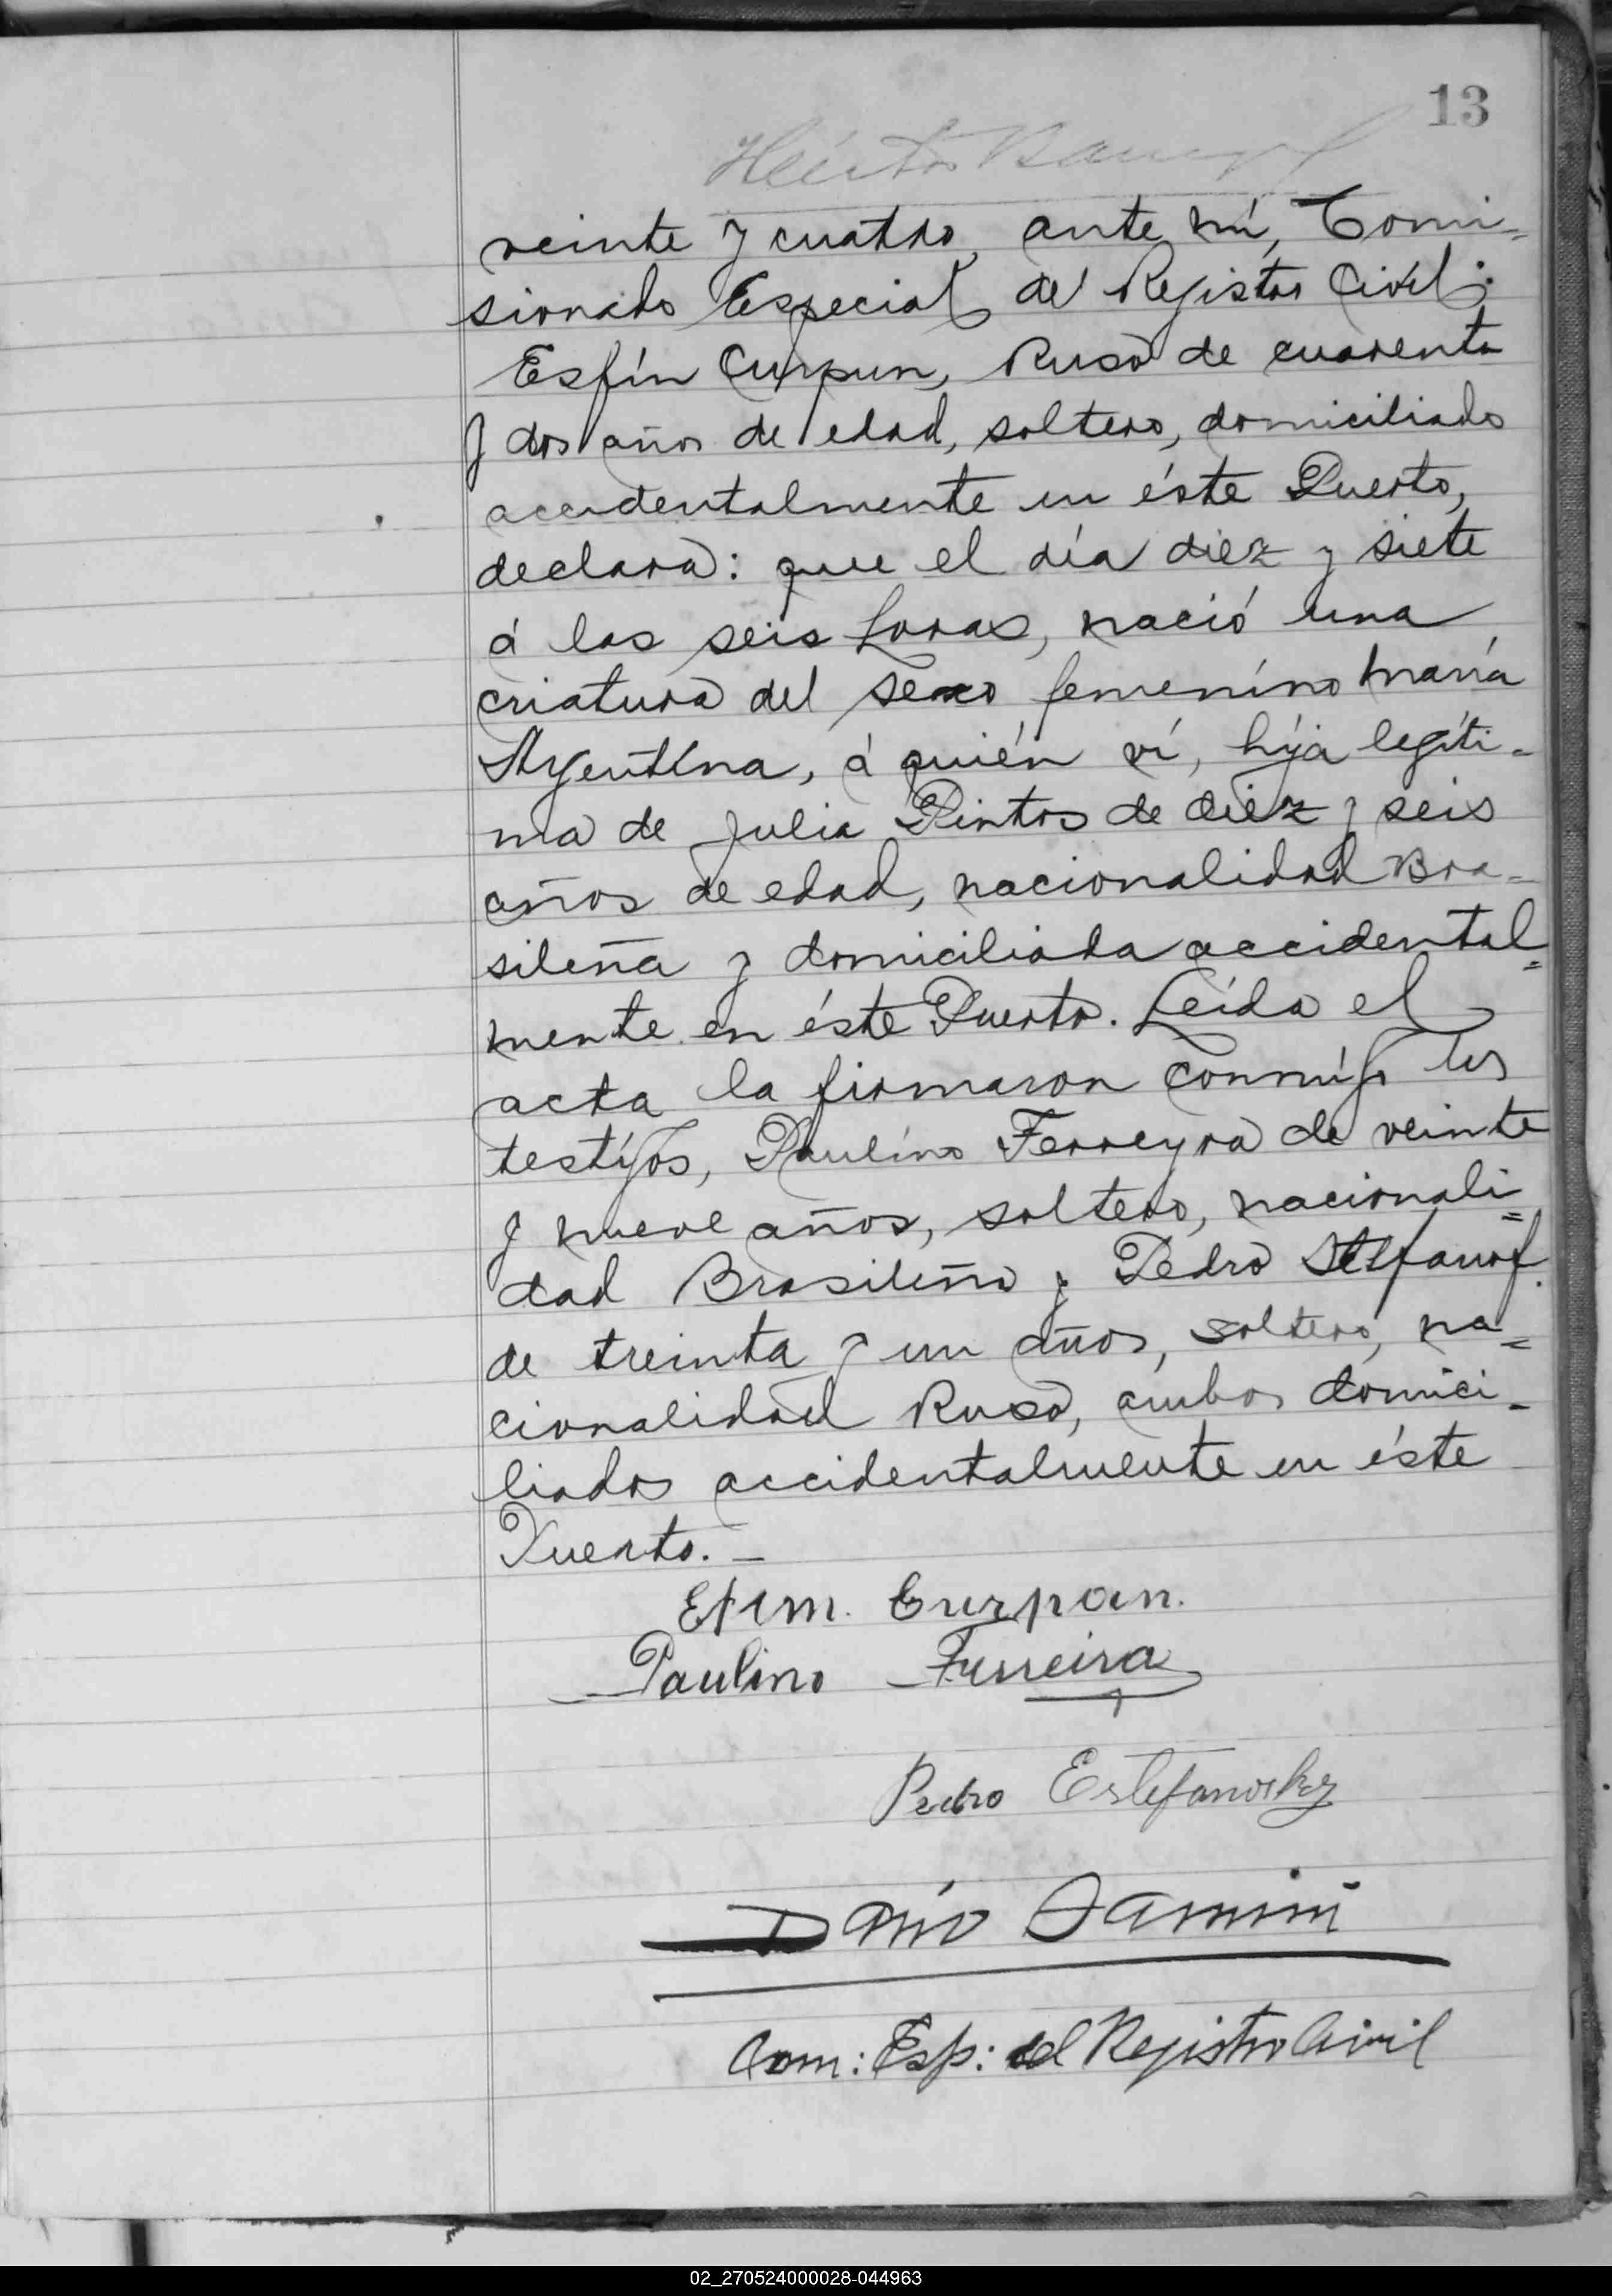 13
Héctor
veinte y cuatro, ante mí, Comi-
sionado Especial del Registro Civil;
Esfín Curpun, Ruso de cuarenta
y dos años de edad, soltero, domiciliado
accidentalmente en éste Puerto,
declara: que el día diez y siete
á las seis horas, nació una
criatura del sexo femeníno María
Argentína, á quién ví, hija legíti-
ma de Julia Pintos de diez y seis
años de edad, nacionalidad Bra-
sileña y domiciliada accidental=
mente en éste Puerto. Leída el
acta la firmaron conmígo los
testígos, Paulíno Ferreyra de veinte
y nueve años, soltero, nacionali=
dad Brasileño y Pedro Stefanof.
de treinta y un años, soltero, na=
cionalidad Ruso, ambos domici-
liados accidentalmente en éste
Puerto.-
Efim. Curpan.
Paulino Ferreira
Pedro Estefanosky
Darío
Com: Esp: del Registro Civil
02_270524000028-044963